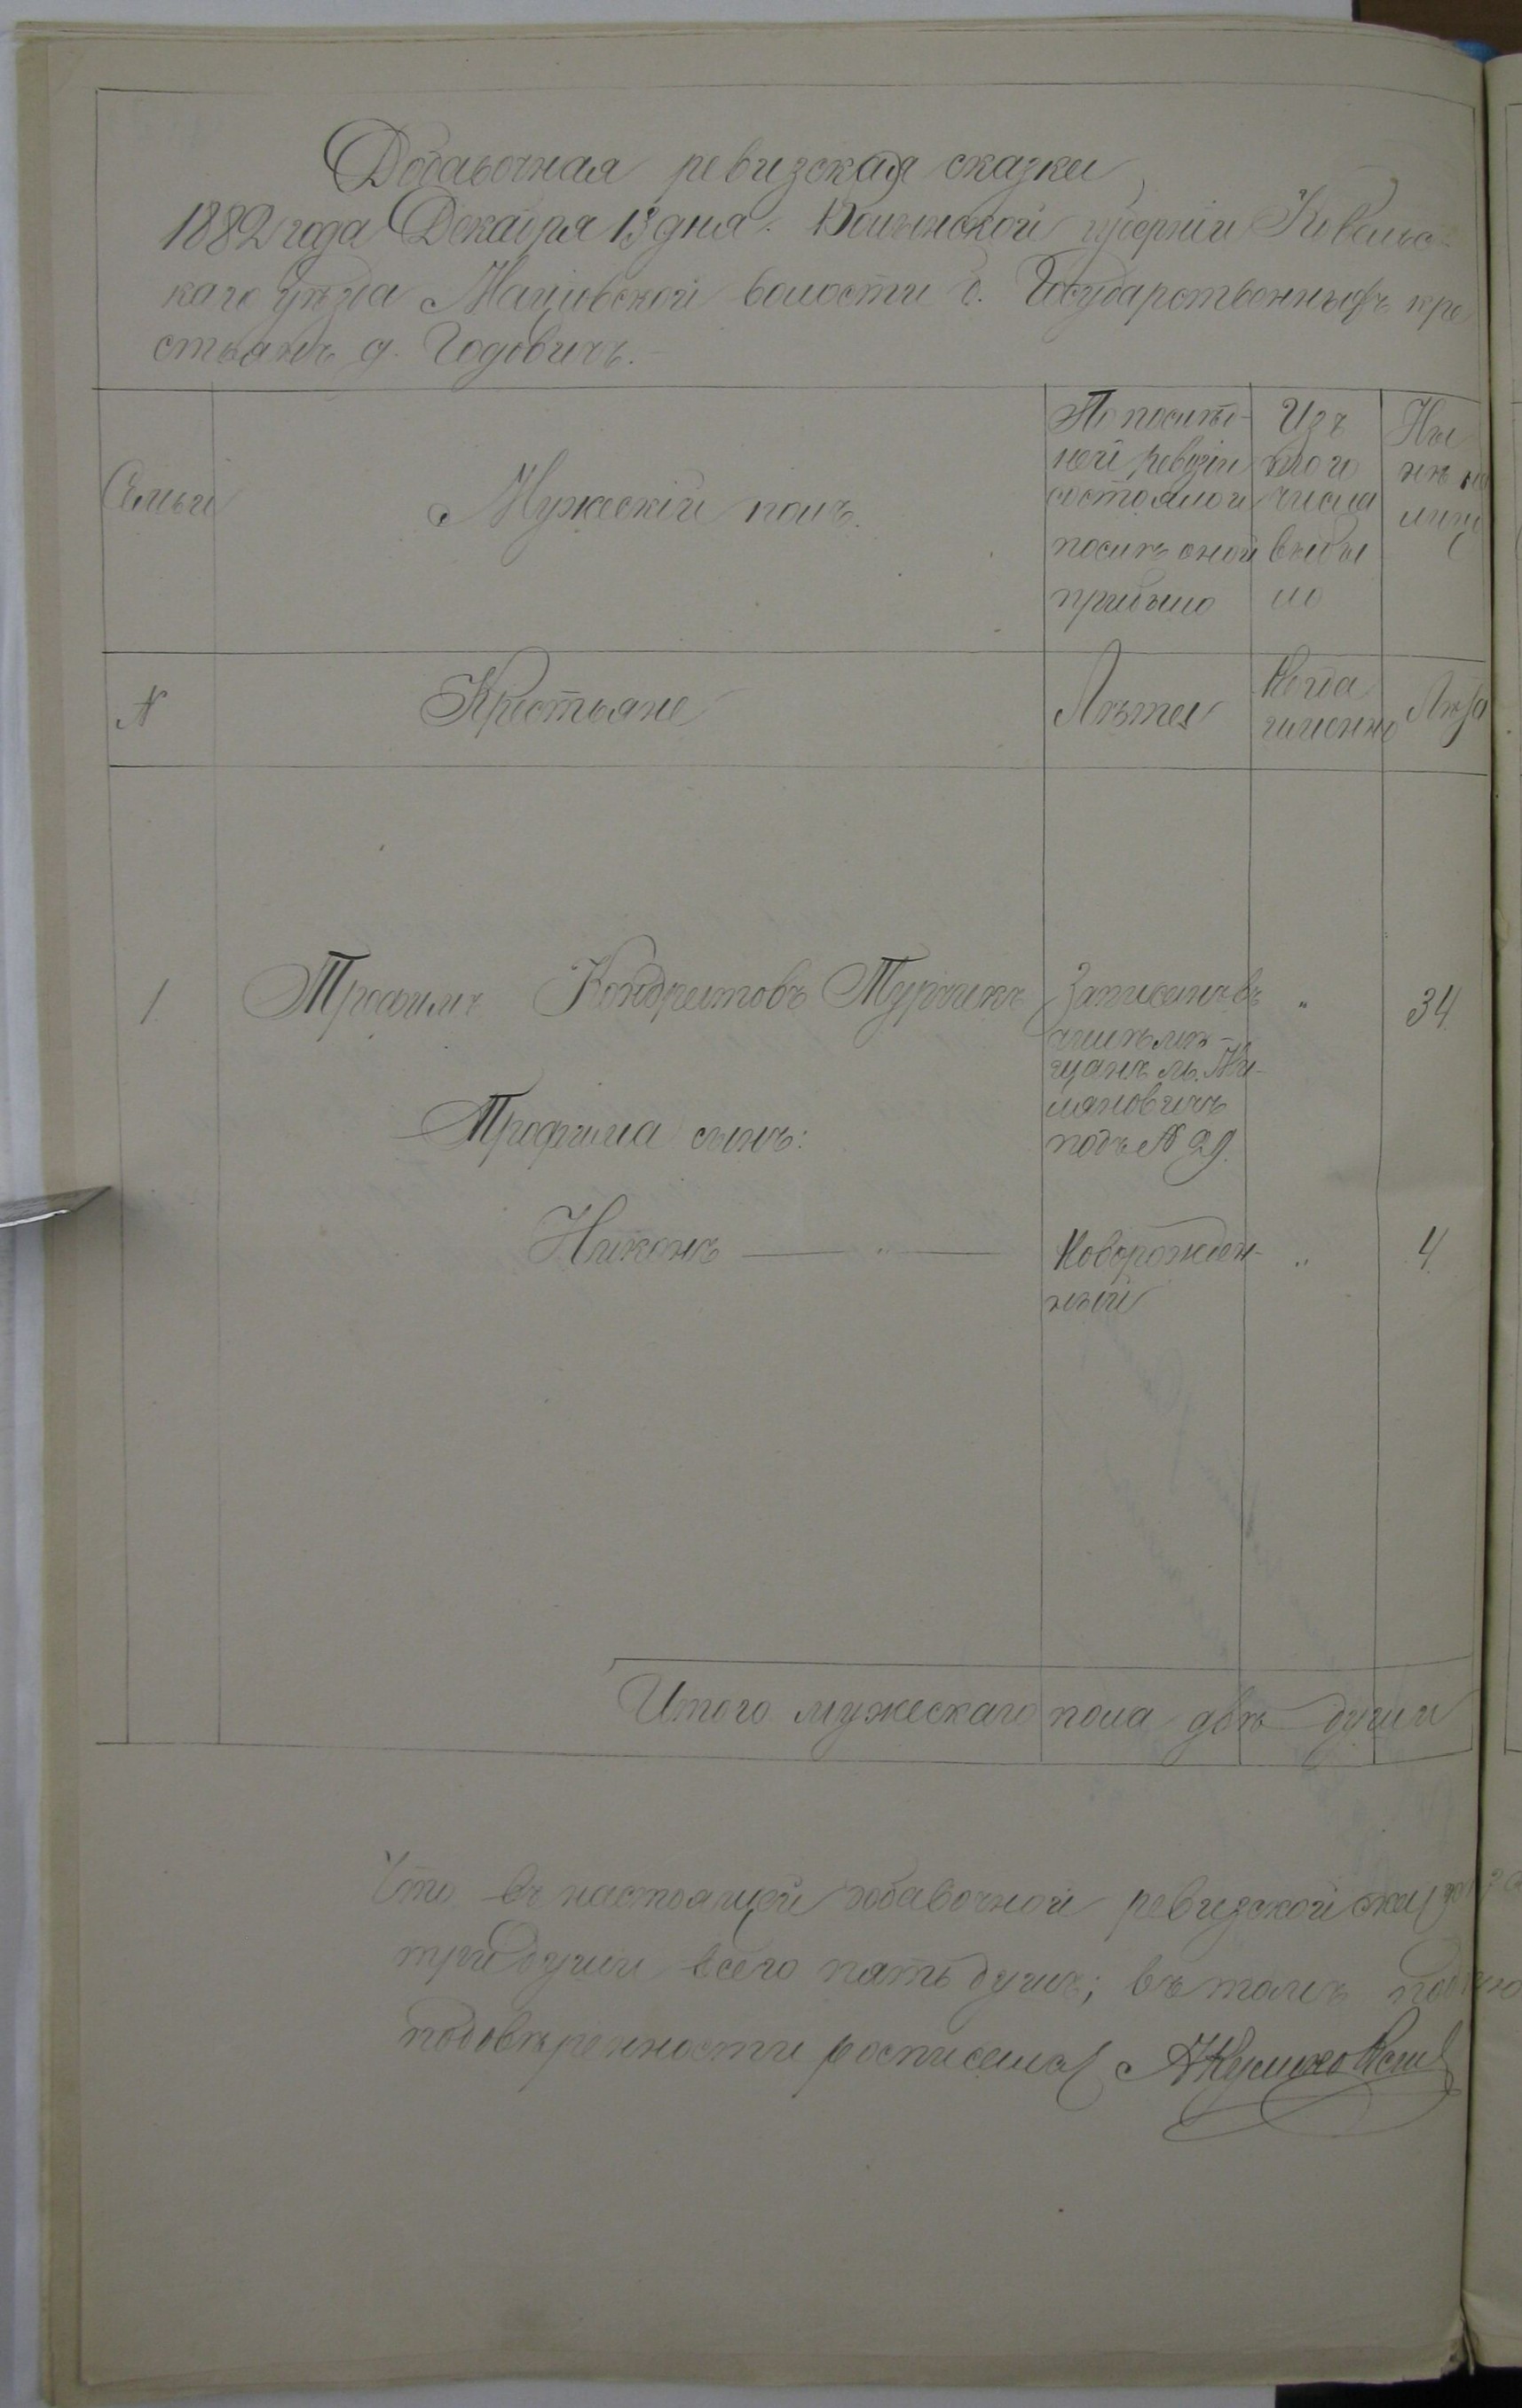 Добавочная ревизская сказка
1882 года Декабря 13 дня. Волынской губерніи Ковельс-
каго уѣзда Маціовской волости б. Государственныхъ кре
стьянъ д. Годовичъ.
Семьи
Мужескій полъ.
По послѣд-
ней ревизіи
состояло и
послѣ оной
прибыло
Изъ
того
числа
выбы
ло
Ны
нѣ на
лицо
N
Крестьяне
Лѣта
Когда
именно
Лѣта
1.
Трофимъ Кондратовъ Турчикъ
Записанъ въ
числѣ мѣ-
щанъ м.
подъ N 29.
"
34.
Трофима сынъ:
Никонъ — " —
Новорожден-
ный
"
4.
Итого мужескаго пола двѣ души
Что въ настоящей добавочной ревизской
три души всего пять душъ; въ томъ
по довѣренности росписался